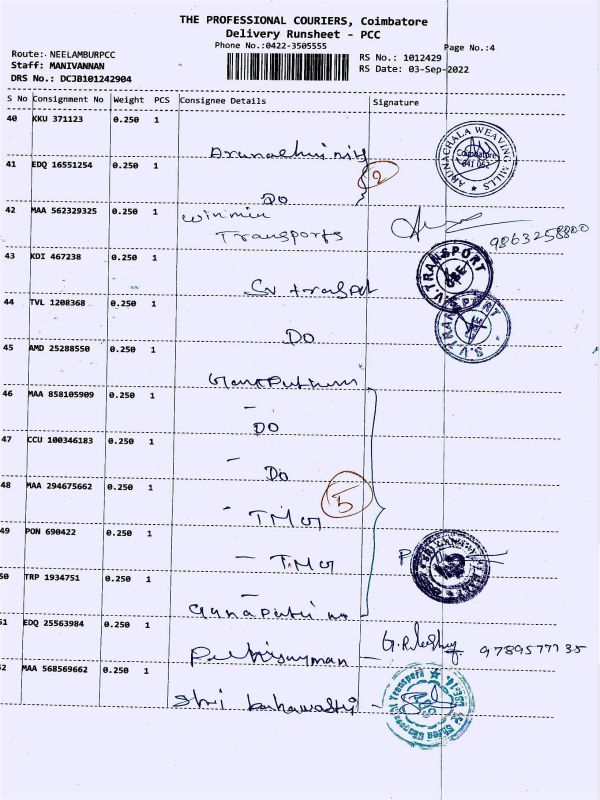 THE PROFESSIONAL COURIERS, Coimbatore
Delivery Runsheet - PCC
Phone No.:0422-3505555
Page No.:4
Route: NEELAMBURPCC
RS No.: 1012429
Staff: MANIVANNAN
RS Date: 03-Sep-2022
DRS No.: DCJB101242904
S No Consignment No Weight PCS Consignee Details Signature
40 KKU 371123 0.250 1
ARUNACHALA WEAVING MILLS
Coimbatore
641 062
41 EDQ 16551254 0.250 1
2
Do
42 MAA 562329325 0.250 1
Winmin
Transports
9863258800
43 KDI 467238 0.250 1
S.V. TRANSPORT
CBE
Sv transpt
44 TVL 1208368 0.250 1
S.V. TRANSPORT
Do
45 AMD 25288550 0.250 1
46 MAA 858105909 0.250 1
- Do
47 CCU 100346183 0.250 1
- Do
48 MAA 294675662 0.250 1
5
49 PON 690422 0.250 1
50 TRP 1934751 0.250 1
51 EDQ 25563984 0.250 1
9789577735
52 MAA 568569662 0.250 1
Shri